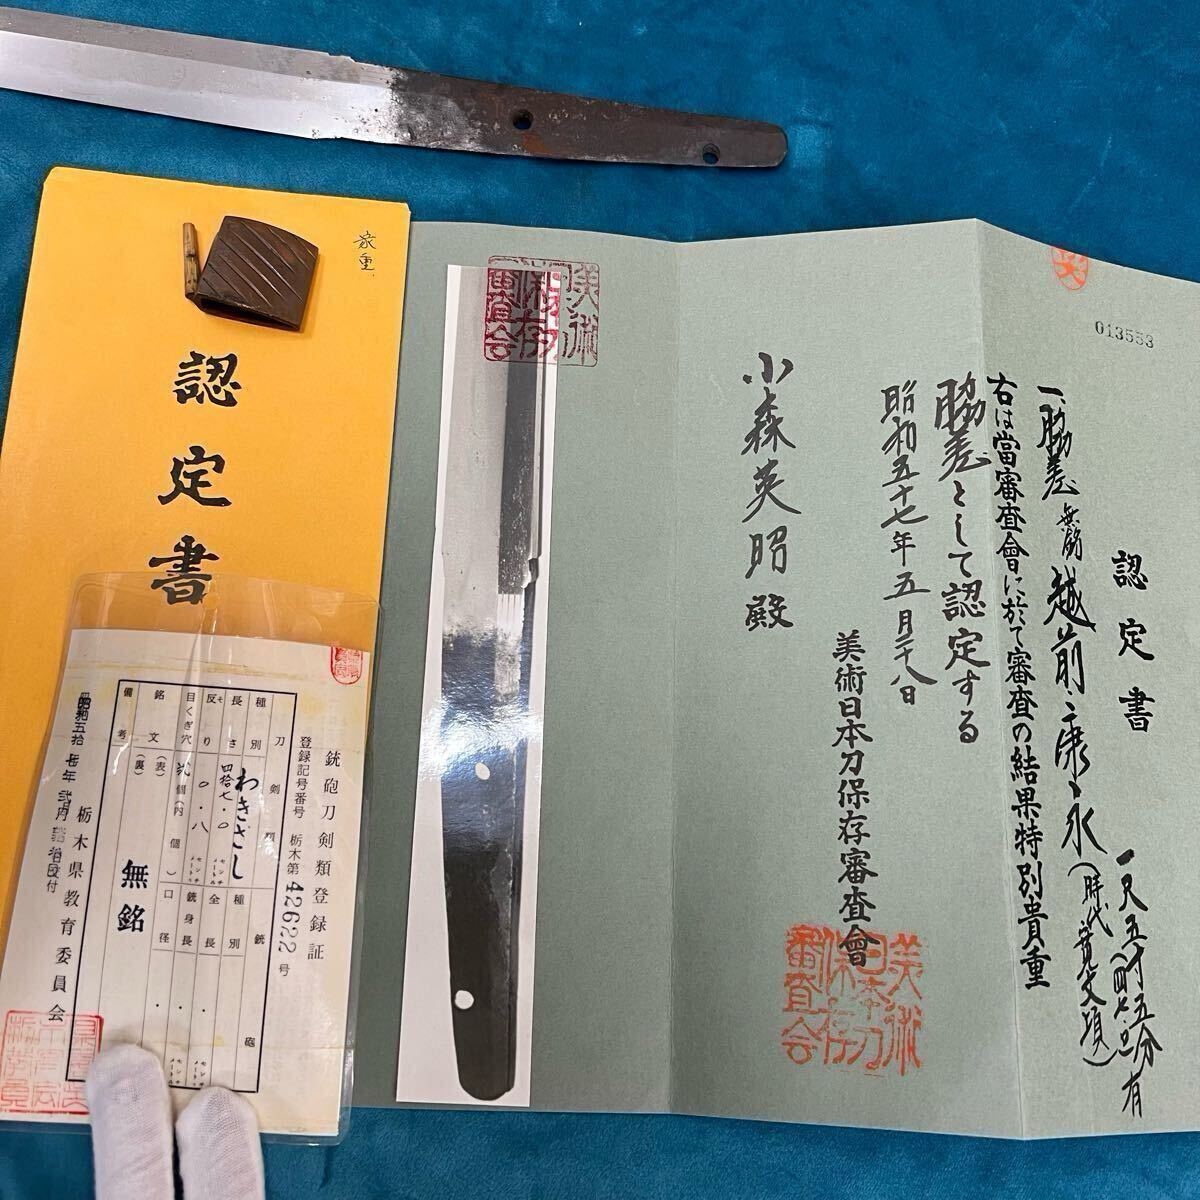 家重
認定書
美術
保存
審査会
013553
認定書
一、脇差 無銘 越前康永(時代寛文頃)
一尺五寸五分有
(四七・〇)
右は當審査會に於て審査の結果特別貴重
脇差として認定する
昭和五十七年五月二十八日
美術日本刀保存審査會
小森英昭殿
美術
日本刀
保存
審査会
銃砲刀剣類登録証
登録記号番号 栃木第42622号
刀剣類
種別 わきざし
長さ 四拾七・〇 センチメートル
反り 〇・八 センチメートル
目くぎ穴 弐個(内 個)
銘文 (表) (裏) 無銘
備考
銃砲
種別
全長 ・ センチメートル
銃身長 ・ センチメートル
口径 ・ センチメートル
昭和五拾七年
栃木県教育委員会